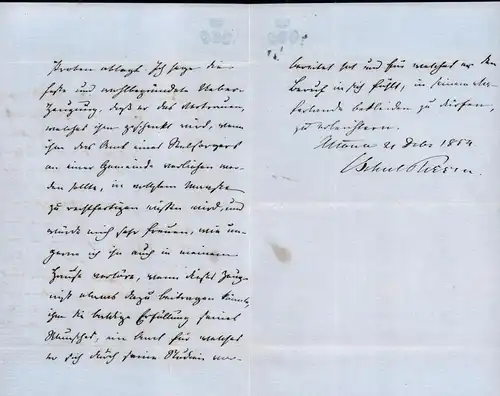 Proben ablegt. Ich hege die
feste und wohlbegründete Ueber-
zeugung, daß er das Vertrauen,
welches ihm geschenkt wird, wenn
ihm das Amt eines Seelsorgers
an einer Gemeinde verliehen wer-
den sollte, in vollstem Maaße
zu rechtfertigen wissen wird, und
würde mich sehr freuen, wie un-
gern ich ihn auch in meinem
Hause verlöre, wenn dieses Zeug-
niß etwas dazu beitragen könnte,
ihm die baldige Erfüllung seines
Wunsches, ein Amt für welches
er sich durch seine Studien vor-
bereitet hat und für welches er den
Beruf in sich fühlt, in seinem Va-
terlande bekleiden zu dürfen,
zu erleichtern.
Altona 21 Debr 1854